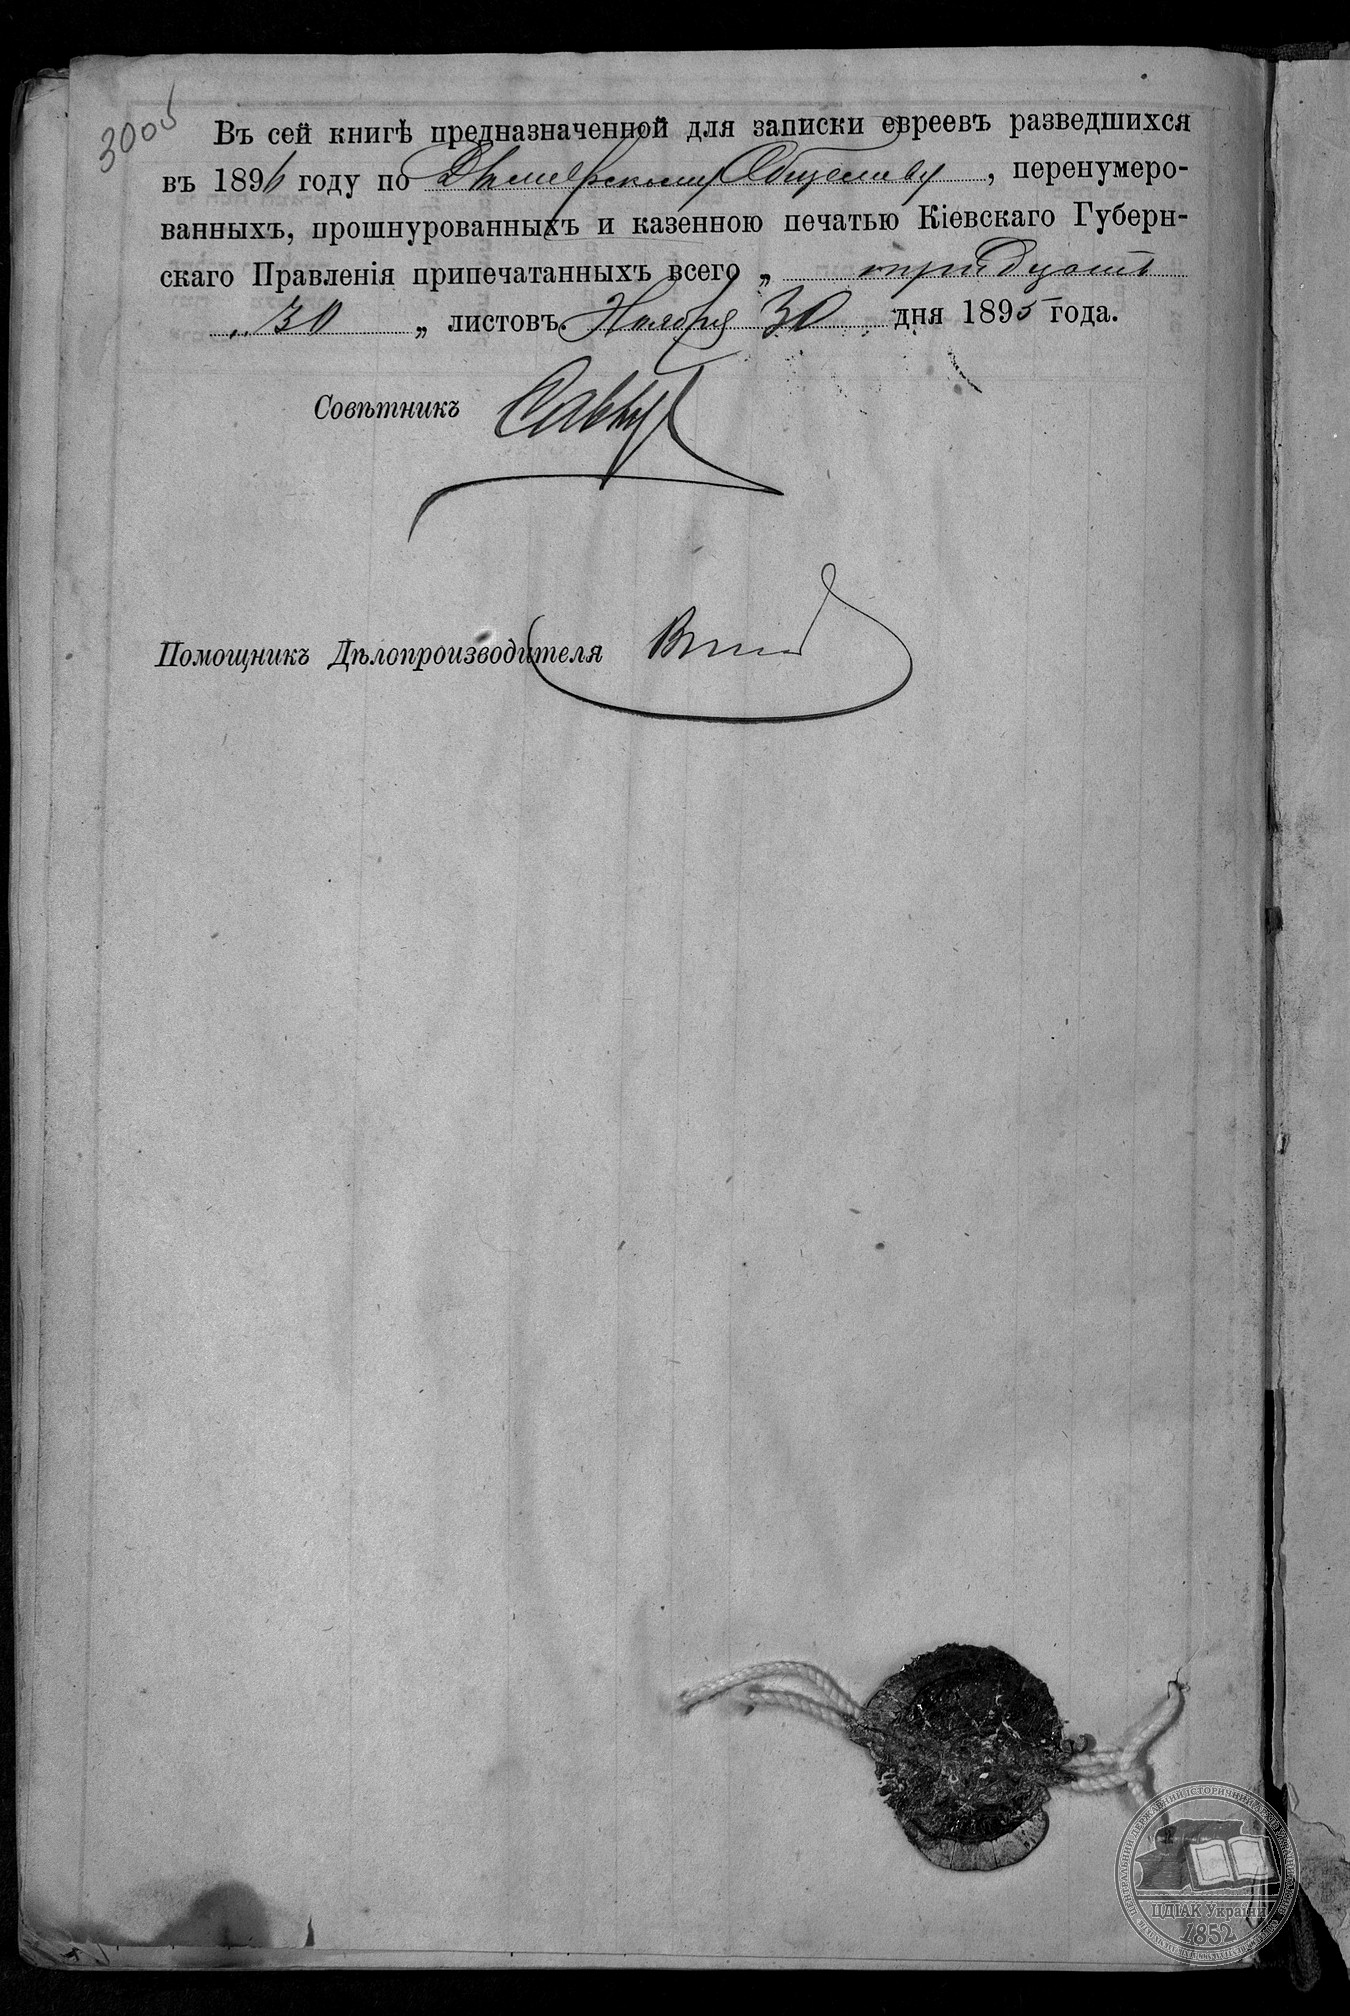 3005
Въ сей книгѣ предназначенной для записки евреевъ разведшихся
въ 1896 году по Дымерскому Обществу, перенумеро-
ванныхъ, прошнурованныхъ и казенною печатью Кіевскаго Губерн-
скаго Правленія припечатанныхъ всего „ тридцать
„ 30 „ листовъ. Ноября 30 дня 1895 года.
Совѣтникъ
Помощникъ Дѣлопроизводителя
ЦДІАК України
1852